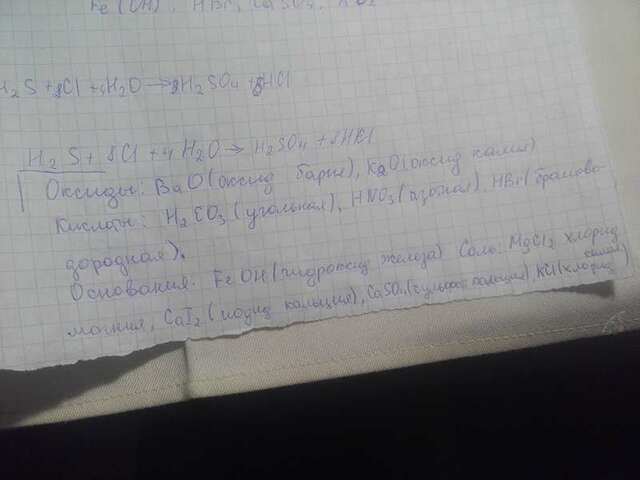 Fe(OH), HBr, CaSO₄, KCl
H₂S + 8Cl + 4H₂O → 8H₂SO₄ + 8HCl
H₂S + 8Cl + 4H₂O → H₂SO₄ + 8HCl
Оксиды: BaO (оксид бария), K₂O (оксид калия)
Кислоты: H₂CO₃ (угольная), HNO₃ (азотная), HBr (бромово-
дородная).
Основания: FeOH (гидроксид железа) Соль: MgCl₂ хлорид
магния, CaI₂ (иодид кальция), CaSO₄ (сульфат кальция), KCl (хлорид
калия)